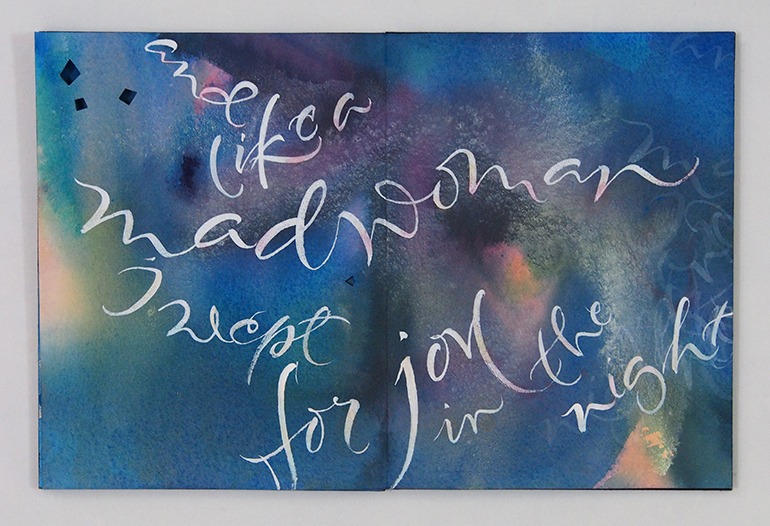 and
like a
madwoman
I wept
for joy
in the
night